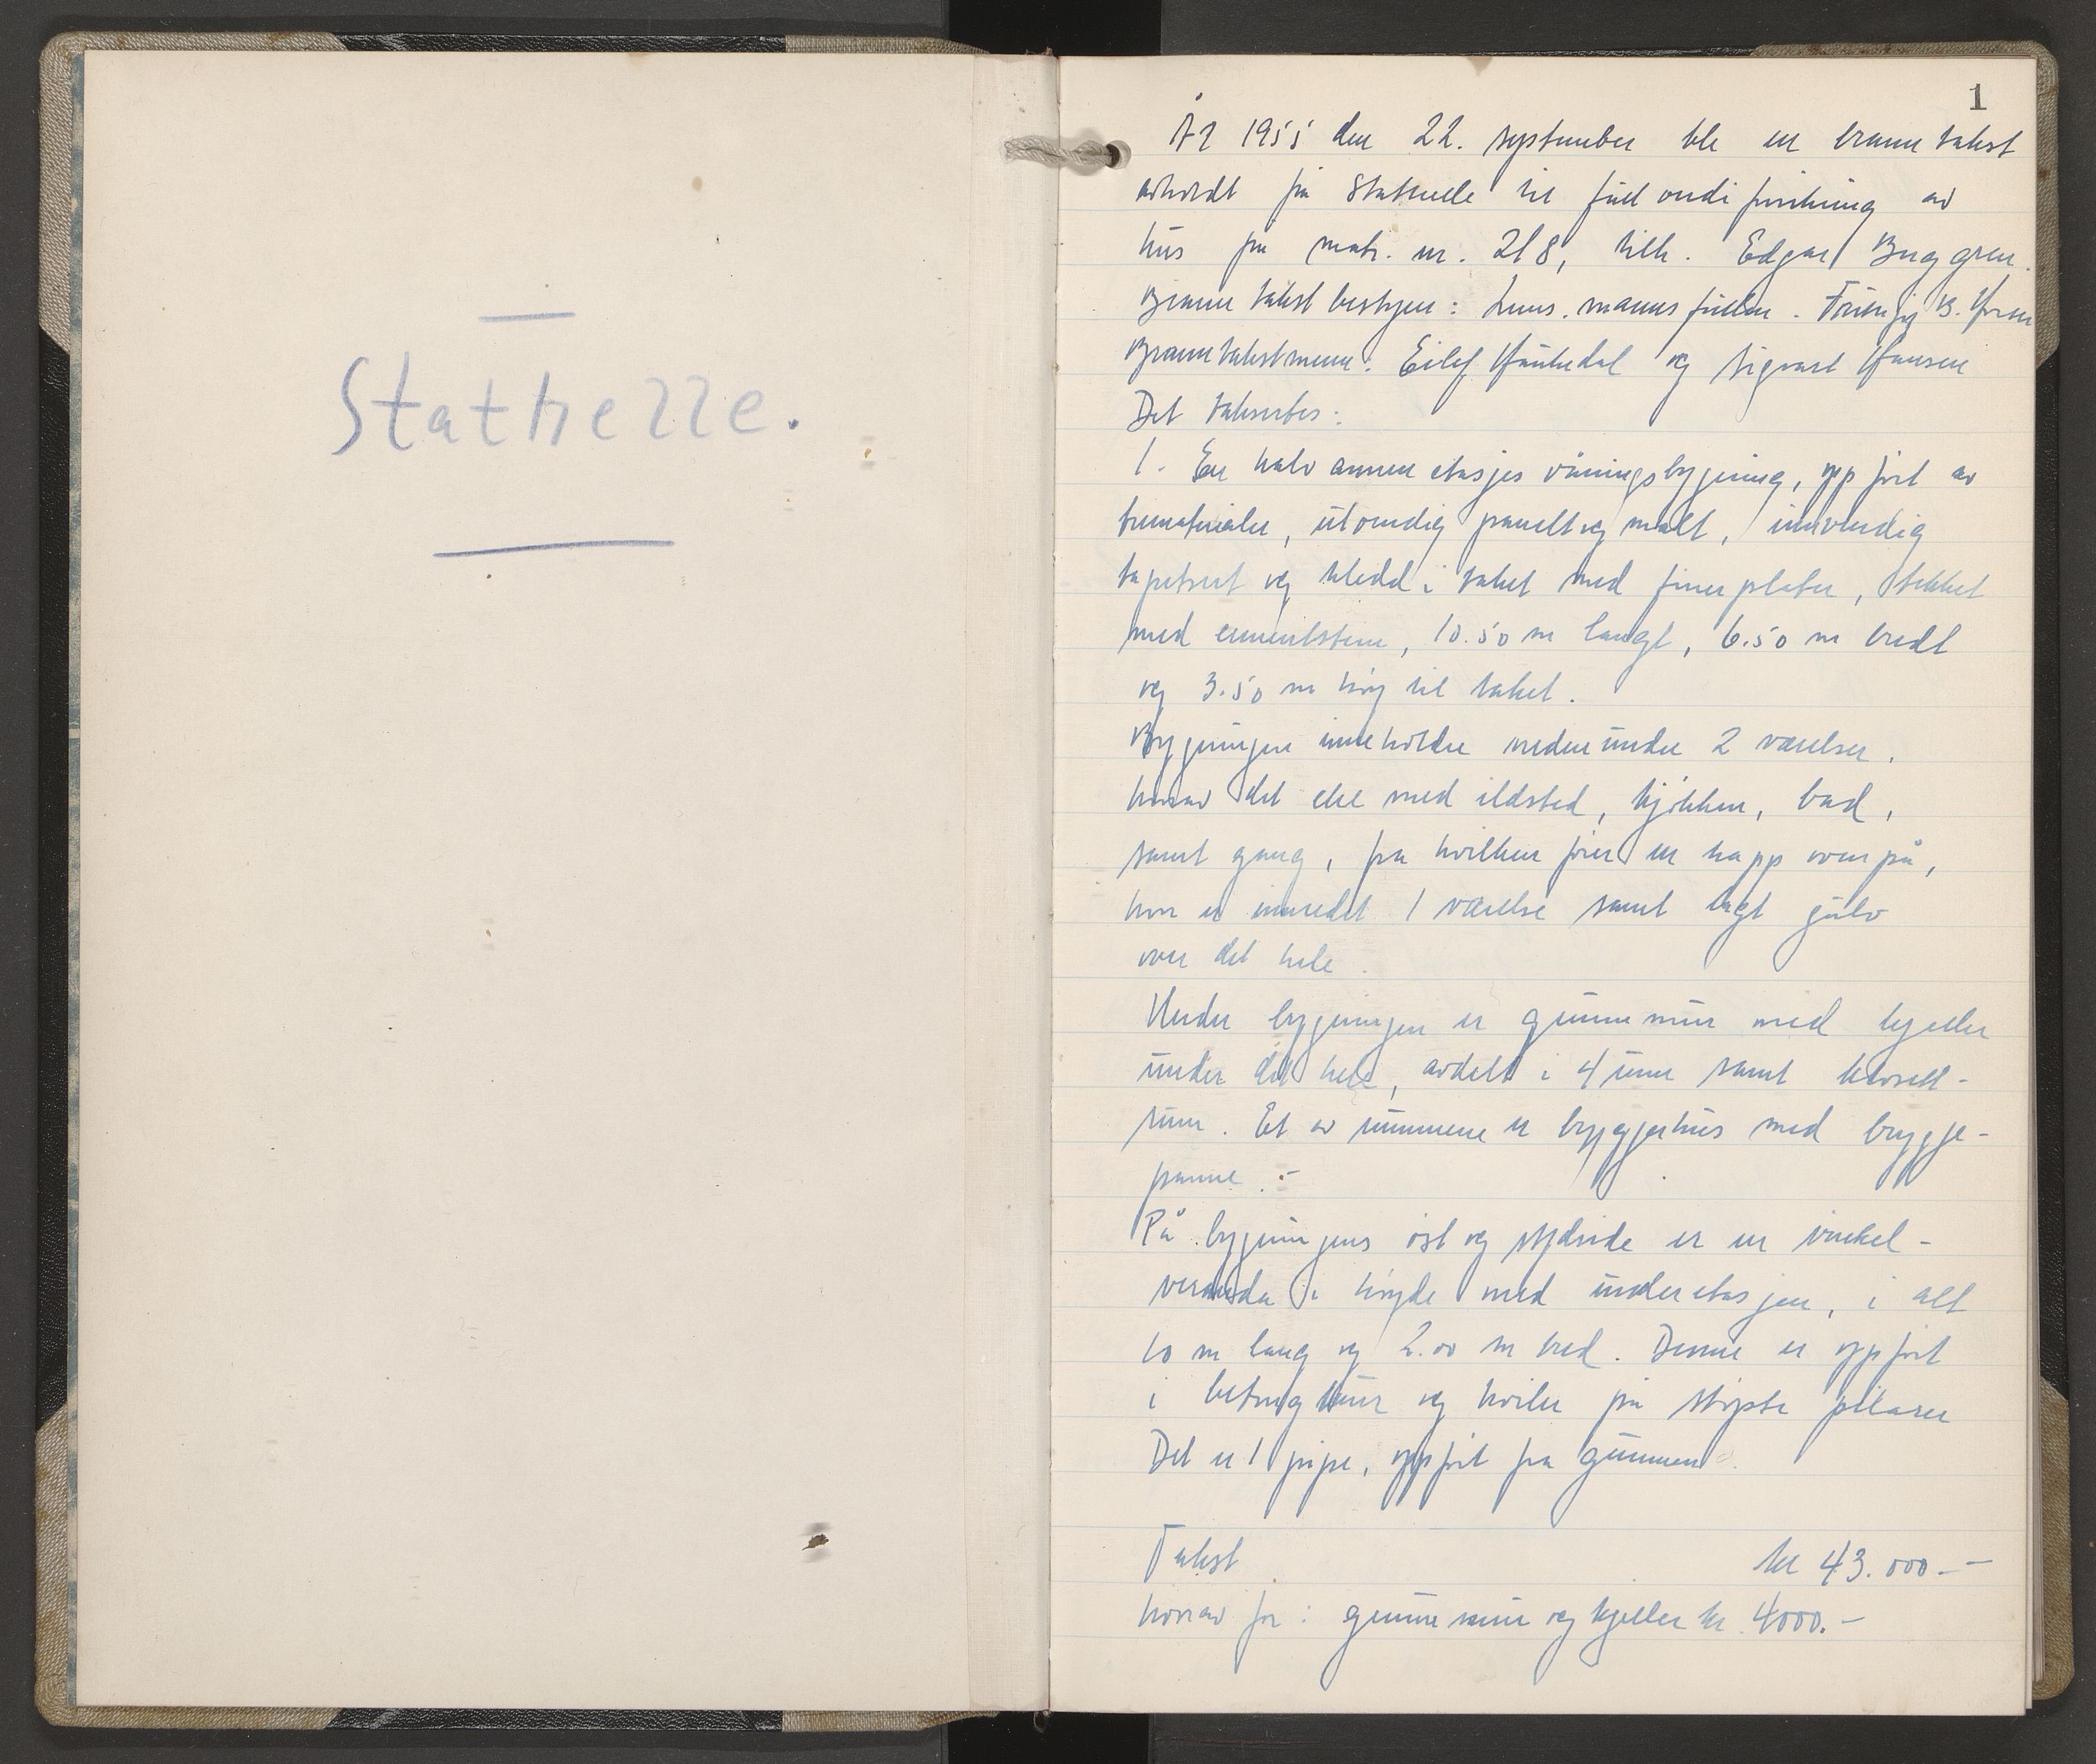 Stathelle.
1
År 1955 den 22. september ble en branntakst
avholdt på Stathelle til full verdiforsikring av
hus på matr. nr. 218, tilh. Edgar Berggren.
Branntakstbestyrer: Lensmannsfullm.
Branntakstmenn: Eilef Haukedal og Sigvart Hansen
Det taksertes:
1. En halv annen etasjes våningsbygning, oppført av
trematerialer, utvendig panelt og malt, innvendig
tapetsert og kledd i taket med finerplater, tekket
med cementsten, 10.50 m langt, 6.50 m bredt
og 3.50 m høg til taket.
Bygningen inneholder nedenunder 2 værelser,
hvorav det ene med ildsted, kjøkken, bad,
samt gang, fra hvilken fører en trapp ovenpå,
hvor er innredet 1 værelse samt lagt gulv
over det hele.
Under bygningen er grunnmur med kjeller
under det hele, avdelt i 4 rum samt klosett-
rum. Et av rummene er bryggerhus med brygge-
panne.-
På bygningens øst og sydside er en vinkel-
veranda i høyde med underetasjen, i alt
10 m lang og 2.00 m bred. Denne er oppført
i betong og hviler på støpte pilarer
Det er 1 pipe, oppført fra grunnen.
Takst kr 43.000.-
hvorav for: grunnmur og kjeller kr 4000.-